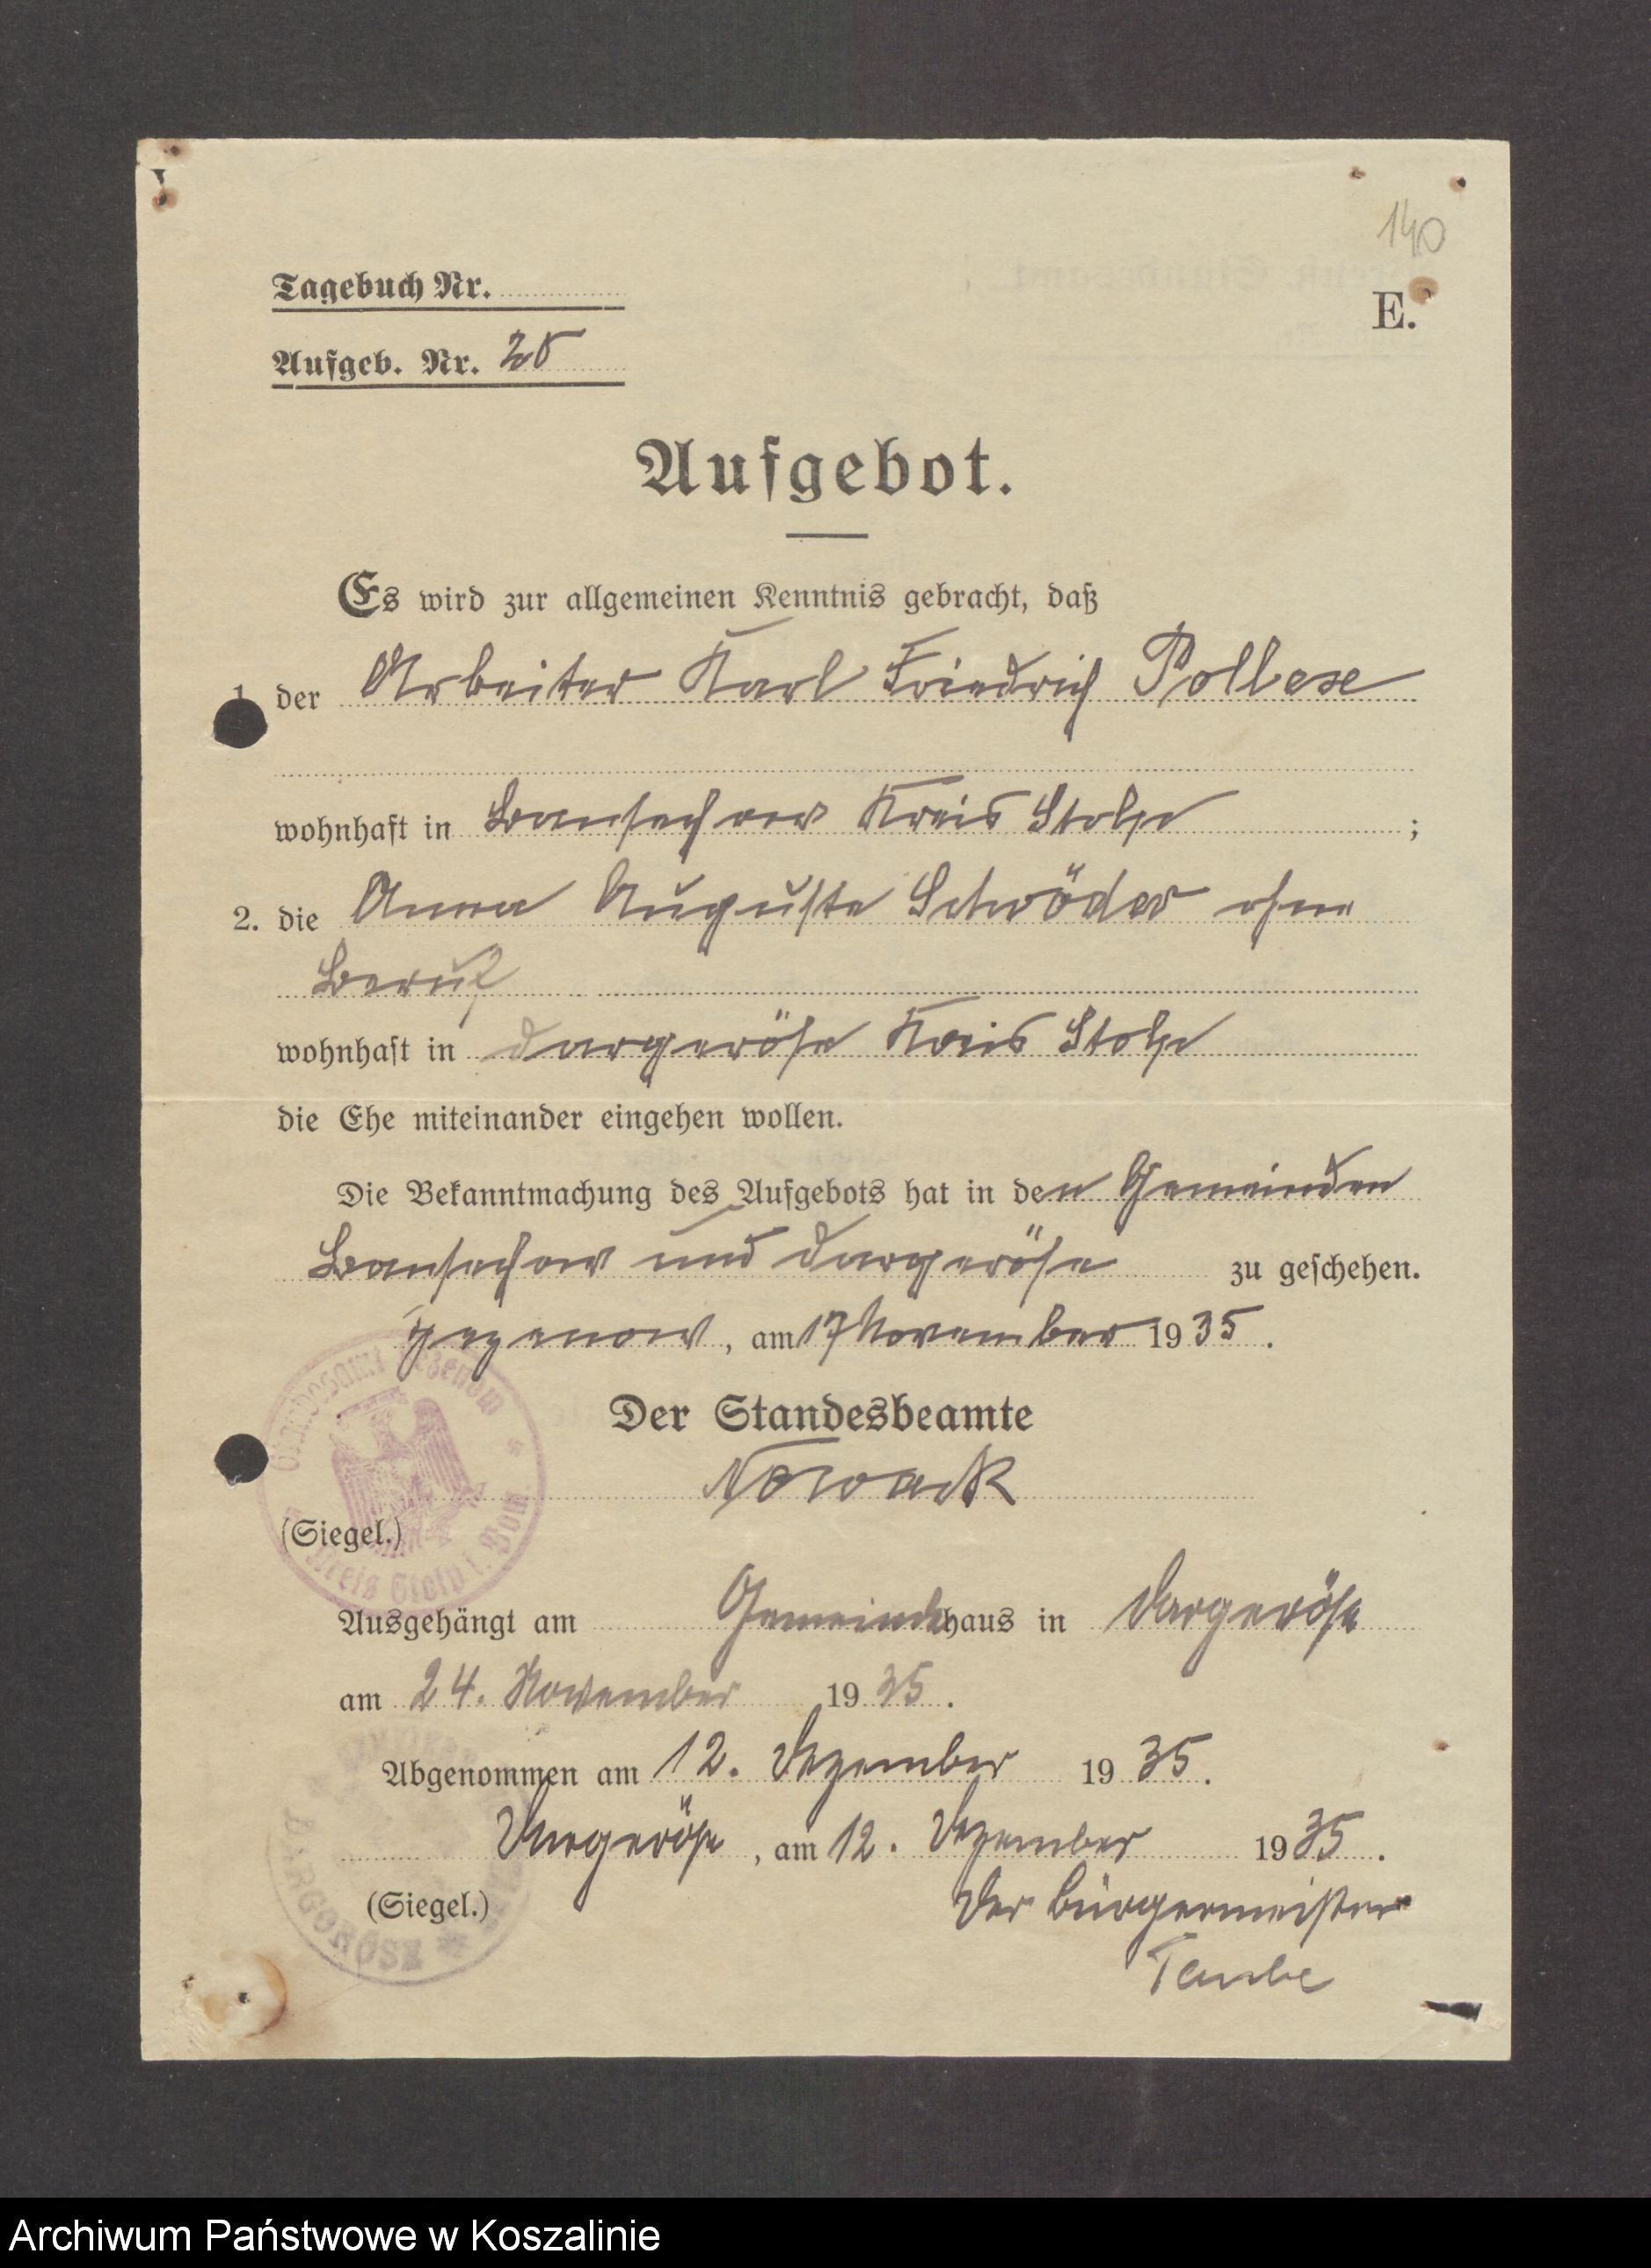 140
Tagebuch Nr.
E.
Aufgeb. Nr. 25
Aufgebot.
Es wird zur allgemeinen Kenntnis gebracht, daß
1. der Arbeiter Karl Friedrich Pollese
wohnhaft in Bansechow Kreis Stolp ;
2. die Anna Auguste Schröder ohne
Beruf
wohnhaft in Dargeröse Kreis Stolp
die Ehe miteinander eingehen wollen.
Die Bekanntmachung des Aufgebots hat in den Gemeinden
Bansechow und Dargeröse zu geschehen.
Zezenow, am 17 November 1935.
Der Standesbeamte
Nowack
(Siegel.)
Standesamt Zezenow
Kreis Stolp i. Pom.
Ausgehängt am Gemeindehaus in Dargeröse
am 24. November 1935.
Abgenommen am 12. Dezember 1935.
Dargeröse, am 12. Dezember 1935.
(Siegel.)
Der Bürgermeister
Taube
DARGORÖSE
Archiwum Państwowe w Koszalinie